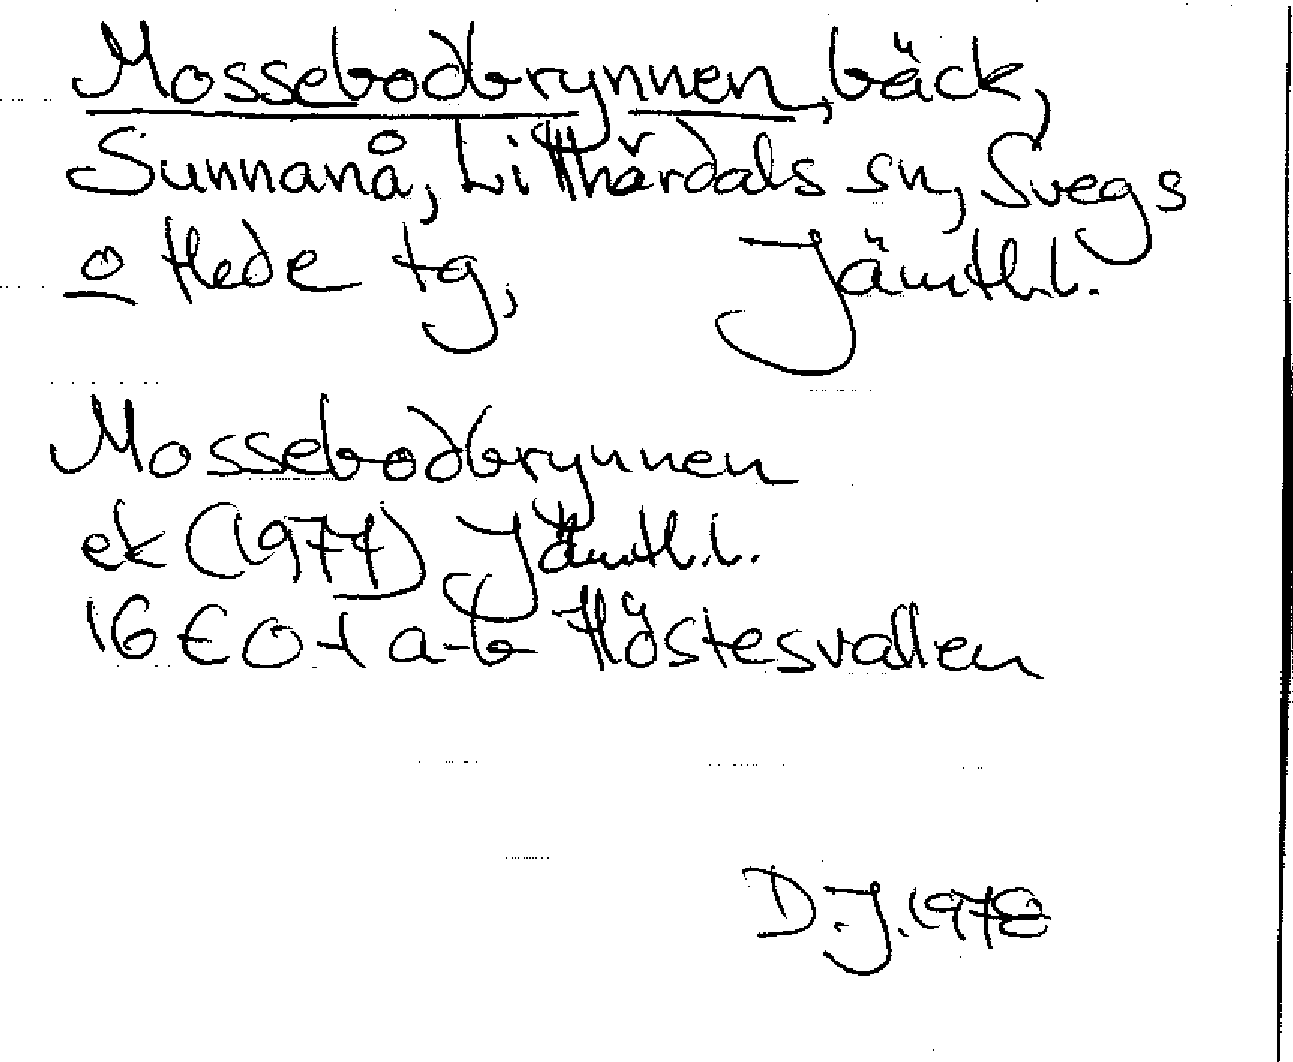 Mossebodbrynnen, bäck,
Sunnanå, Lillhärdals sn, Svegs
o Hede tg, Jämtl. l.
Mossebodbrynnen
ek (1977) Jämtl. l.
16 E 0-1 a-b Höstesvallen
D.J. 1978